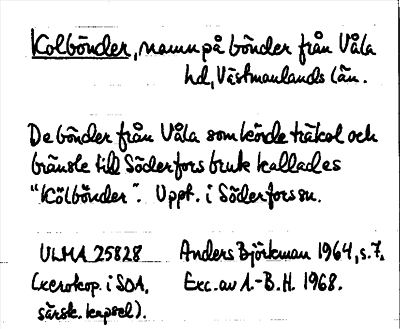 Kolbönder, namn på bönder från Våla
hd, Västmanlands län.
De bönder från Våla som körde träkol och
bränsle till Söderfors bruk kallades
"Kölbönder". Uppt. i Söderfors sn.
ULMA 25828 Anders Björkman 1964, s. 7.
(xerokop. i SOA, Exc. av A.-B. H. 1968.
särsk. kapsel).